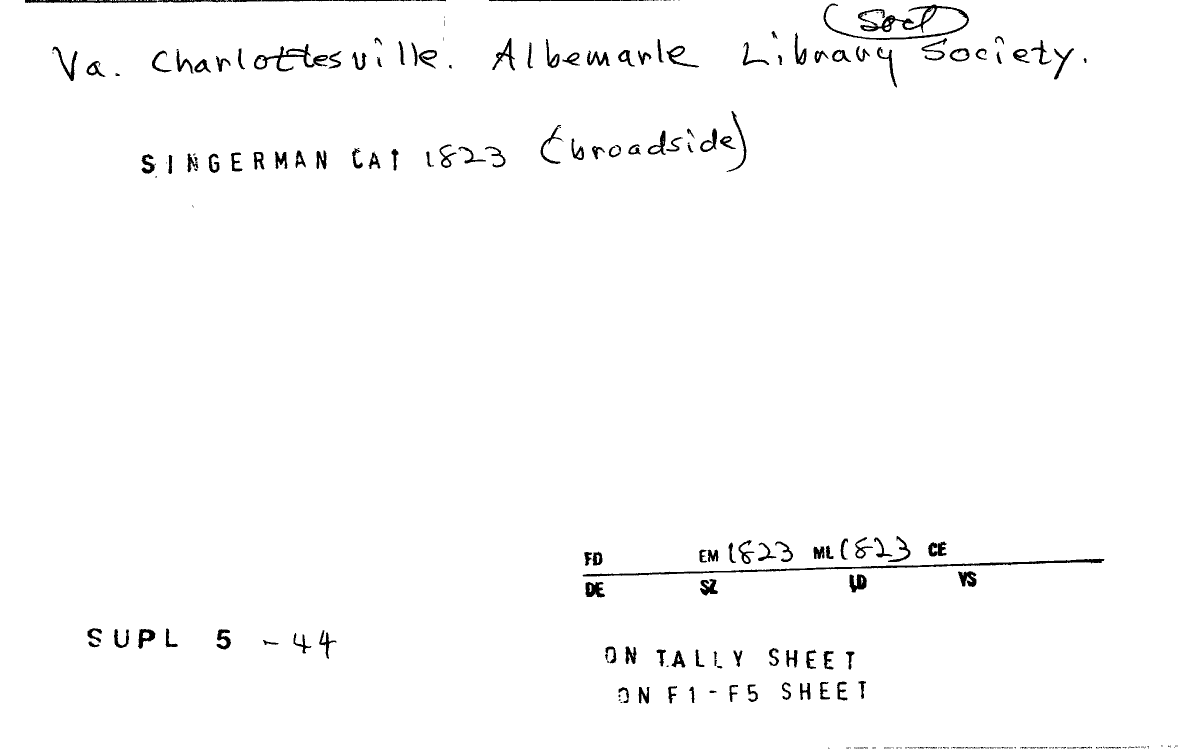 Socl
Va. Charlottesville. Albemarle Library Society.
SINGERMAN CAT 1823 (broadside)
FD EM 1823 ML 1823 CE
DE SZ LD YS
SUPL 5 - 44
ON TALLY SHEET
ON F1-F5 SHEET